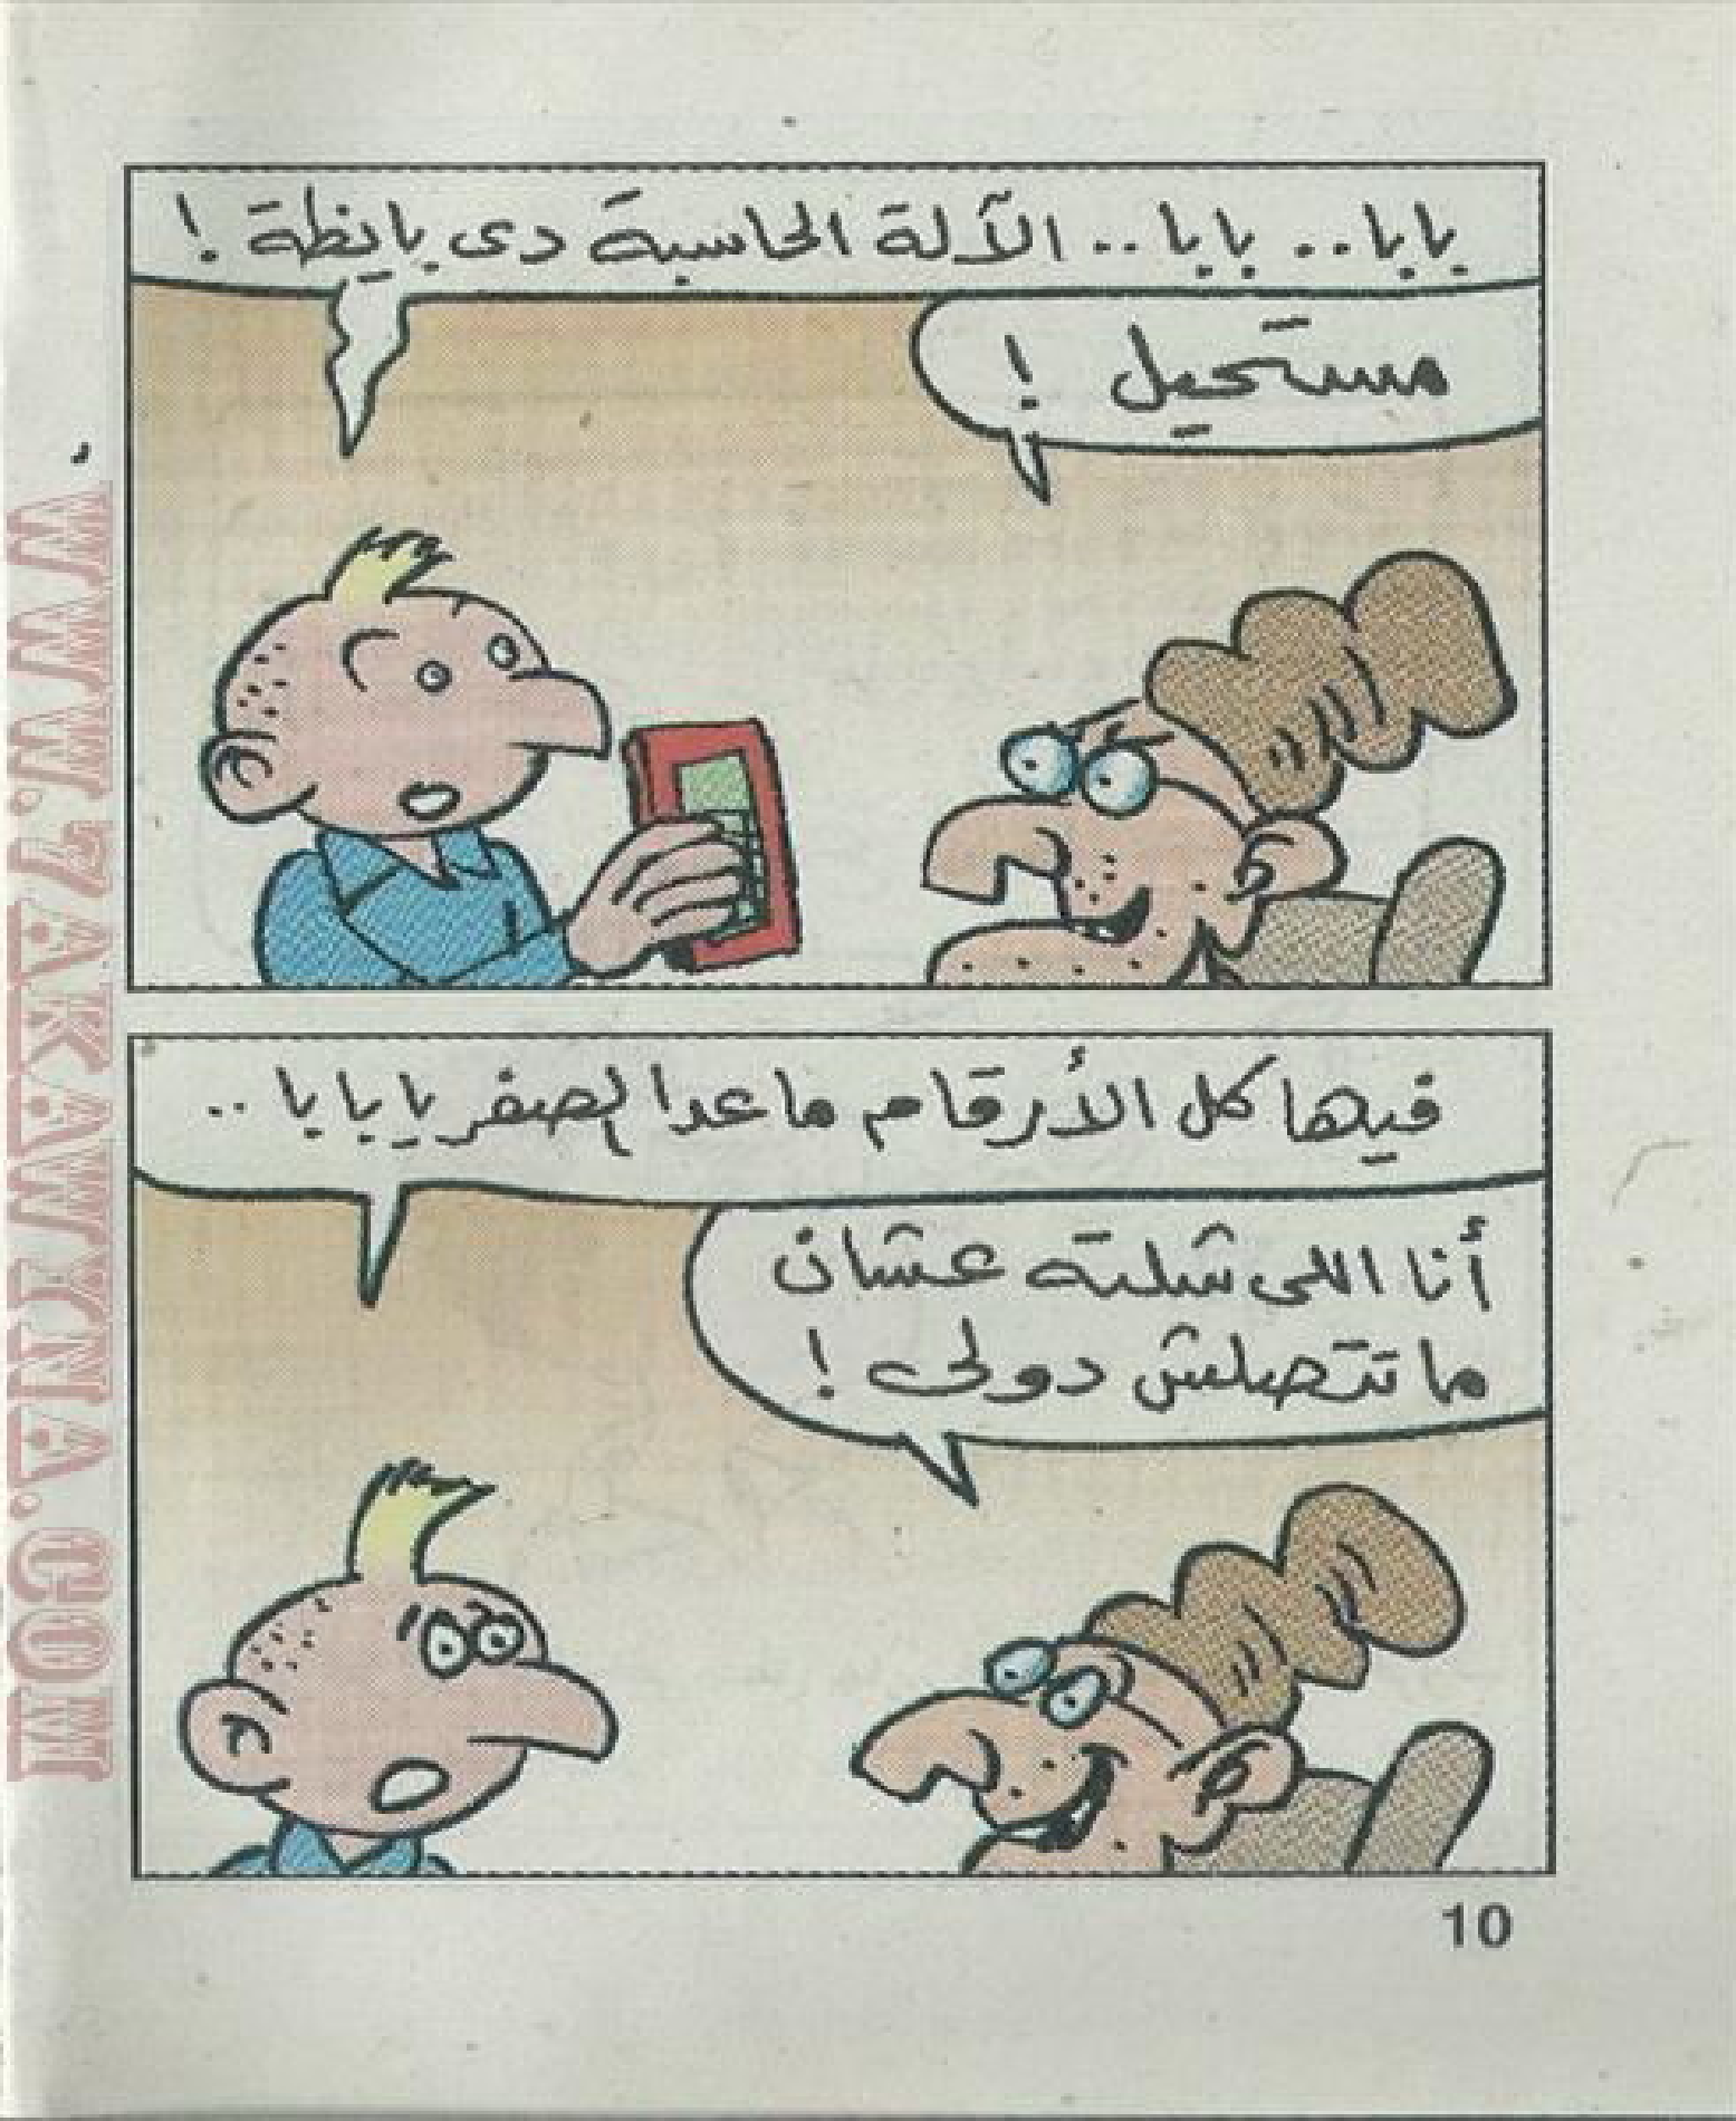 بابا.. بابا.. الآلة الحاسبة دى بايظة !
مستحيل !
فيها كل الأرقام ما عدا الصفر يا بابا ..
أنا اللى شلته عشان
ما تتصلش دولى !
10
WWW.7AKAWINEA.COM